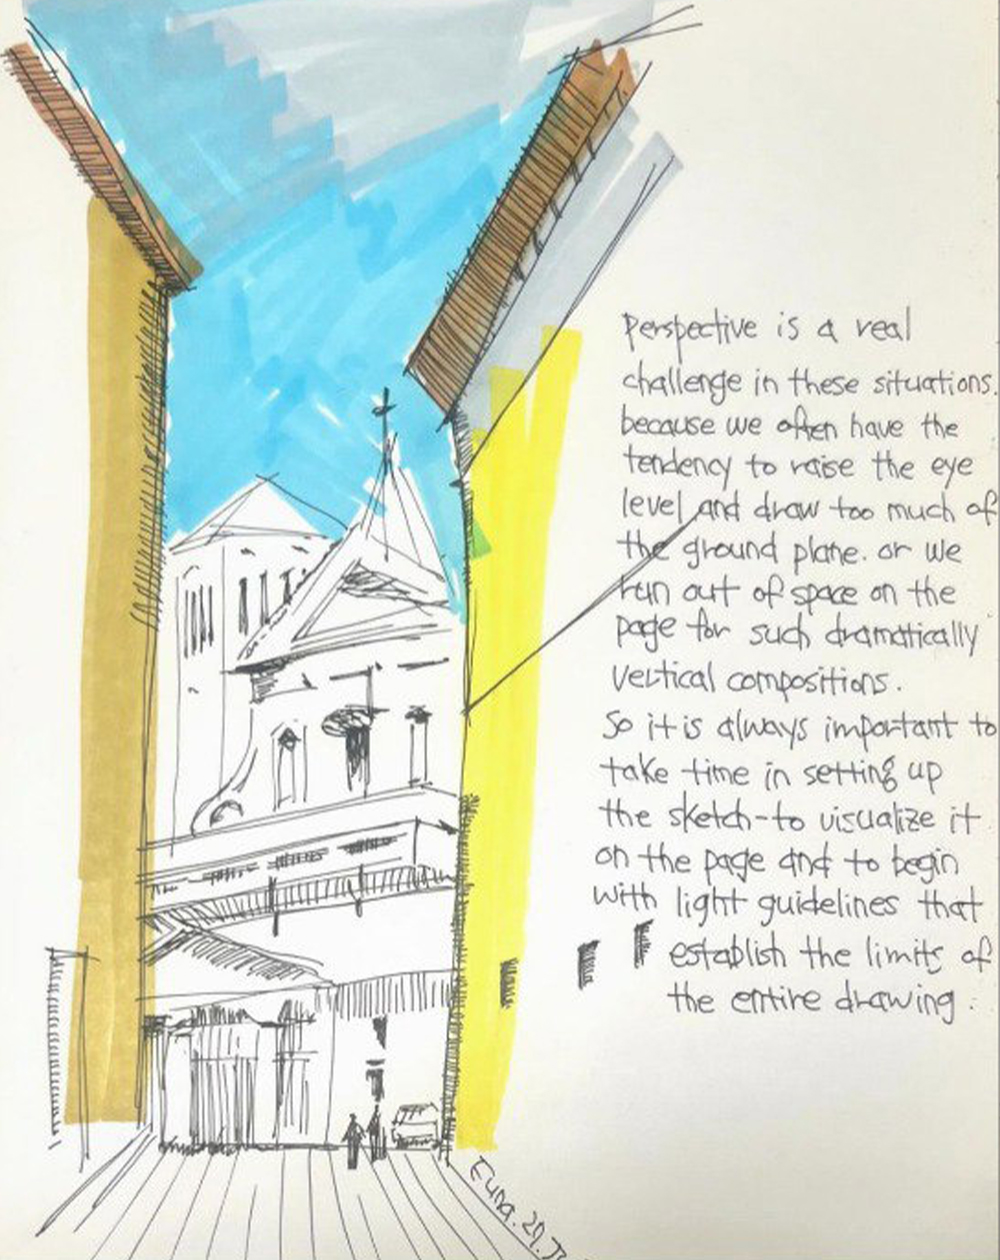 Perspective is a real
challenge in these situations.
because we often have the
tendency to raise the eye
level and draw too much of
the ground plane. or we
run out of space on the
page for such dramatically
vertical compositions.
So it is always important to
take time in setting up
the sketch - to visualize it
on the page and to begin
with light guidelines that
establish the limits of
the entire drawing.